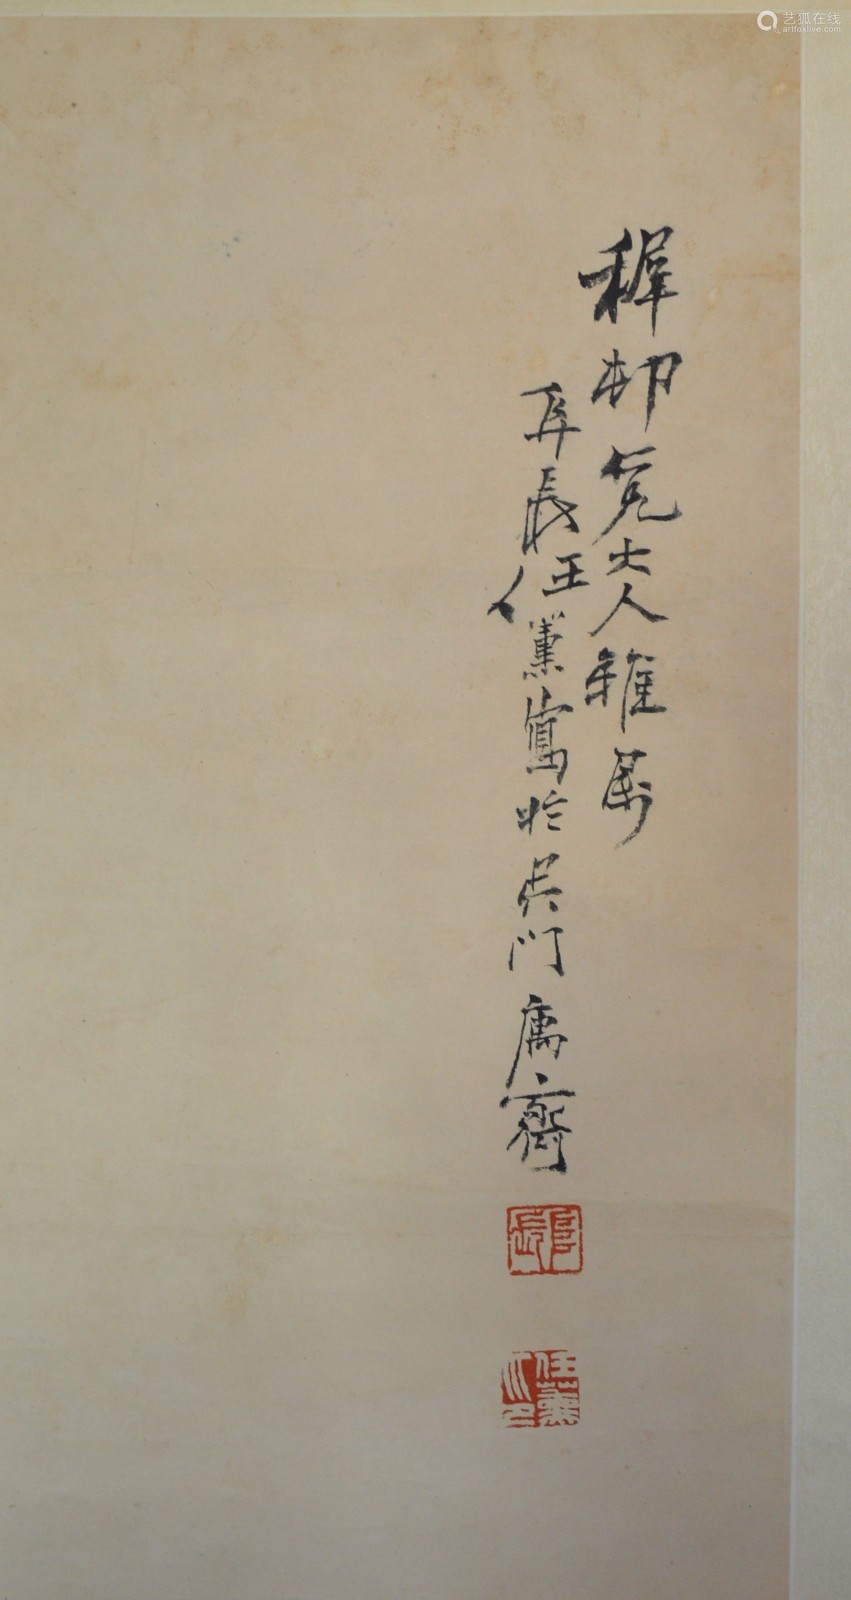 穉邨仁兄大人雅屬
阜長任薰寫於吳門寓齋
阜長
任薰之印
艺狐在线
artfoxlive.com